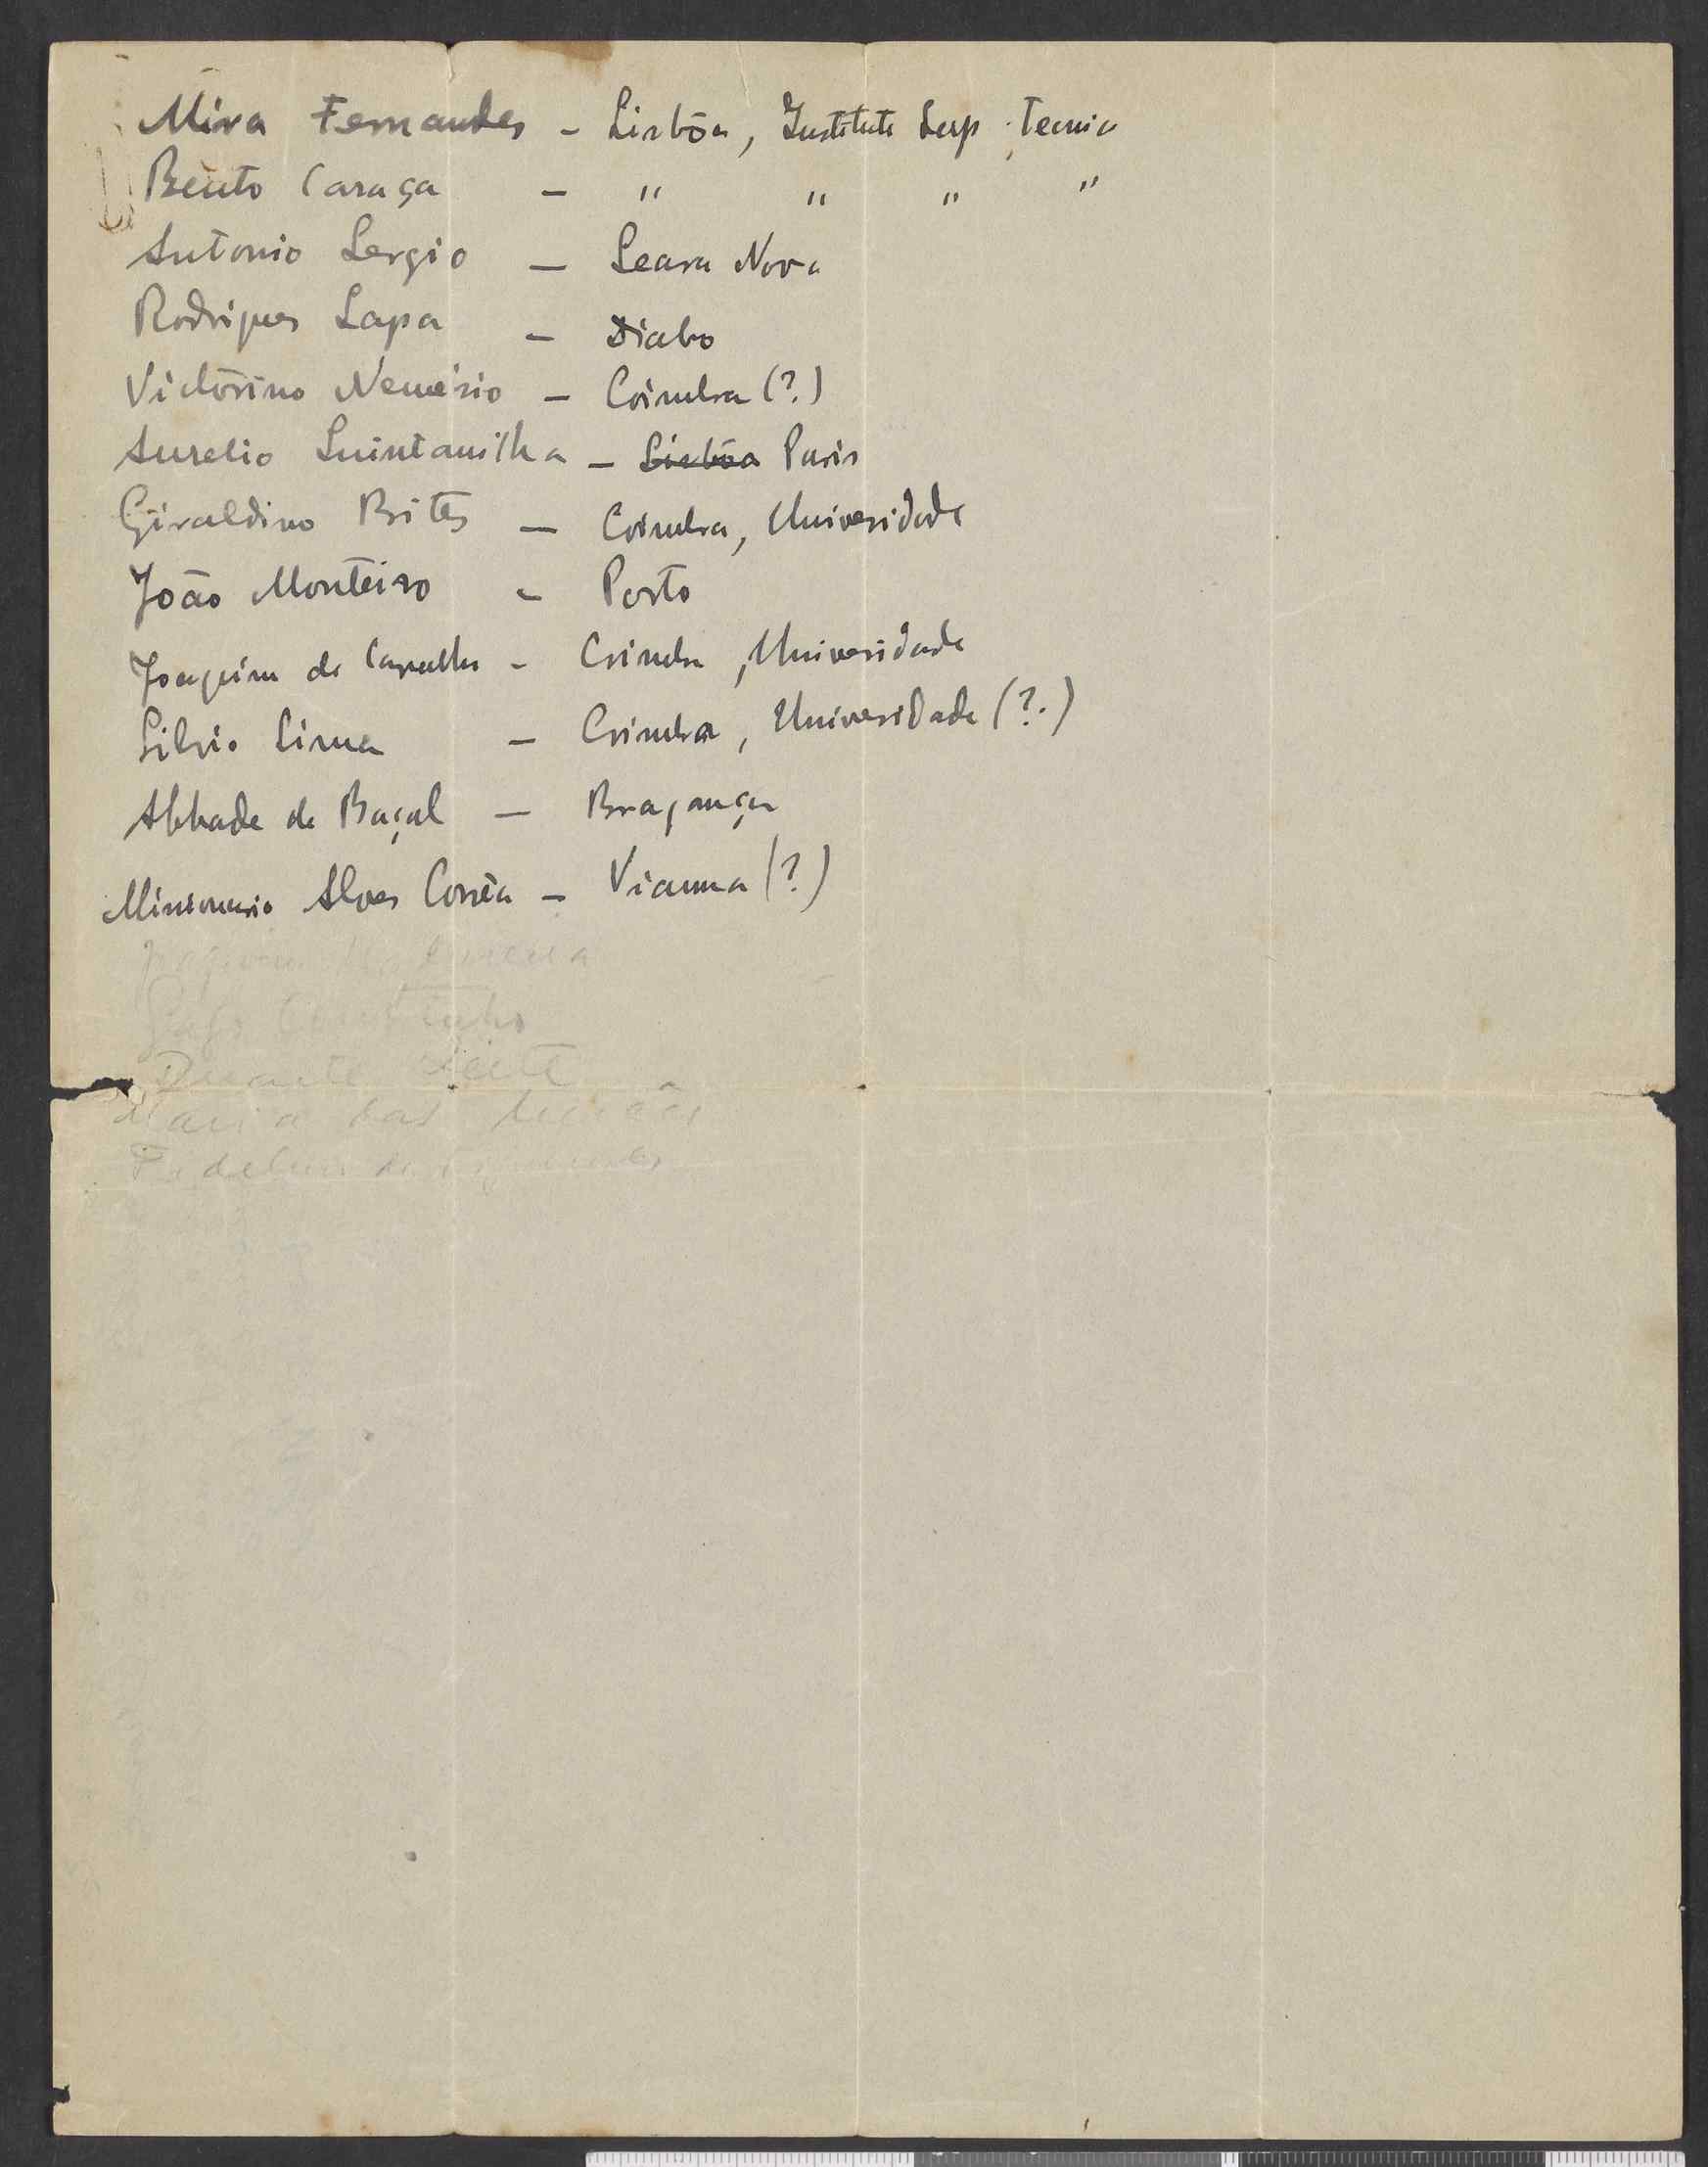 Mira Fernandes - Lisbôa, Instituto Sup. Tecnico
Bento Caraça - " " " "
Antonio Sergio - Seara Nova
Rodrigues Lapa - Diabo
Victorino Nemésio - Coimbra (?)
Aurelio Quintanilha - Lisbôa Paris
Giraldino Brites - Coimbra, Universidade
João Monteiro - Porto
Joaquim de Carvalho - Coimbra, Universidade
Silvio Lima - Coimbra, Universidade (?)
Abbade de Baçal - Bragança
Missionario Alves Corrêa - Vianna (?)
Gago Coutinho
Duarte Leite
Fidelino de Figueiredo